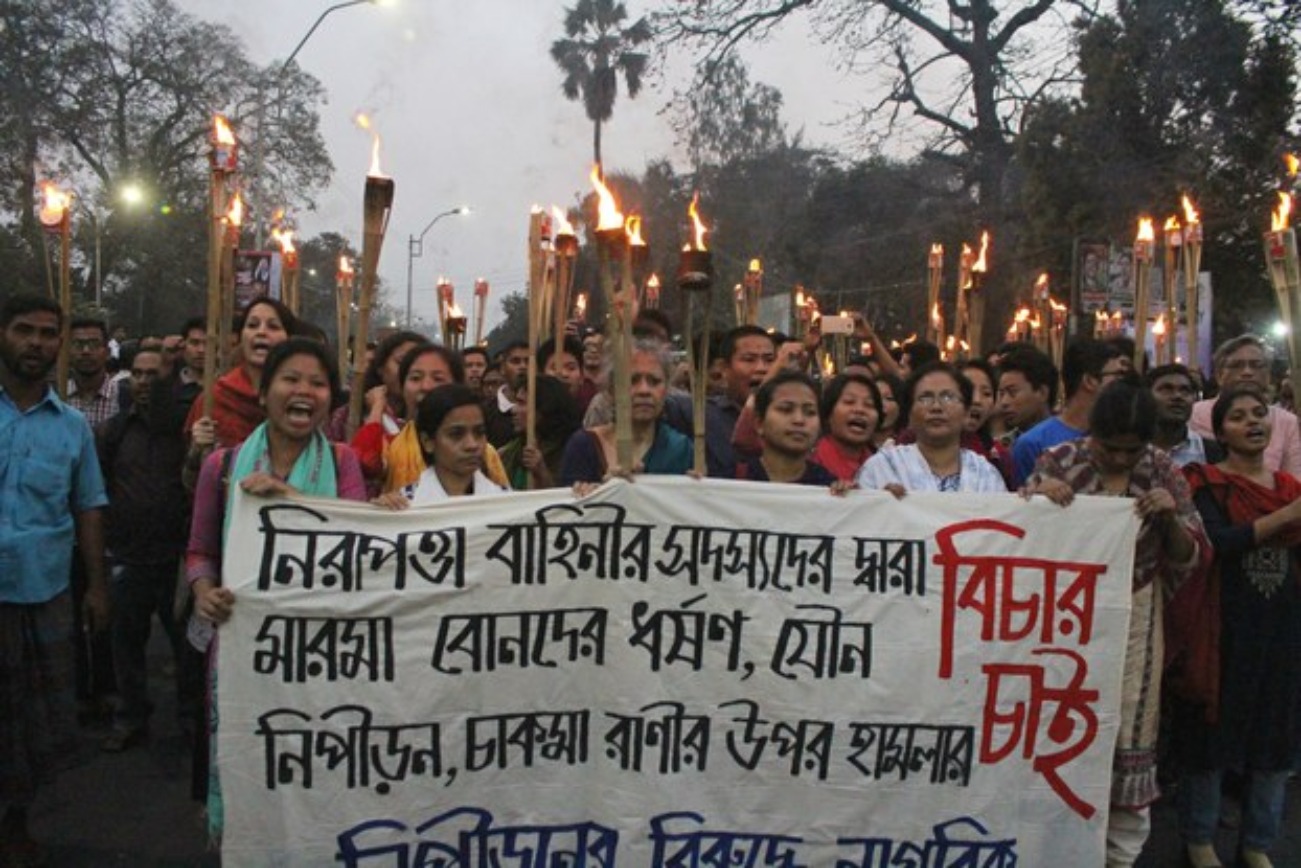 নিরাপত্তা বাহিনীর সদস্যদের দ্বারা
মারমা বোনদের ধর্ষণ, যৌন
নিপীড়ন, চাকমা রাণীর উপর হামলার
বিচার
চাই
নিপীড়নের বিরুদ্ধে নাগরিক